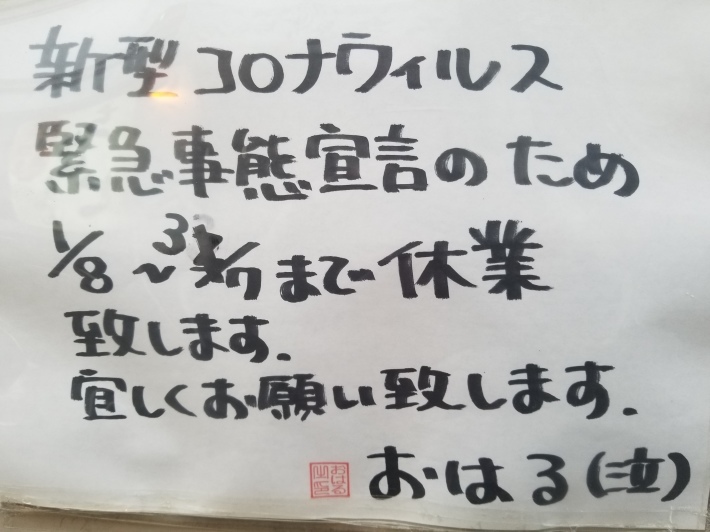 新型コロナウィルス
緊急事態宣言のため
1/8~3/7まで休業
致します.
宜しくお願い致します.
おはる(泣)